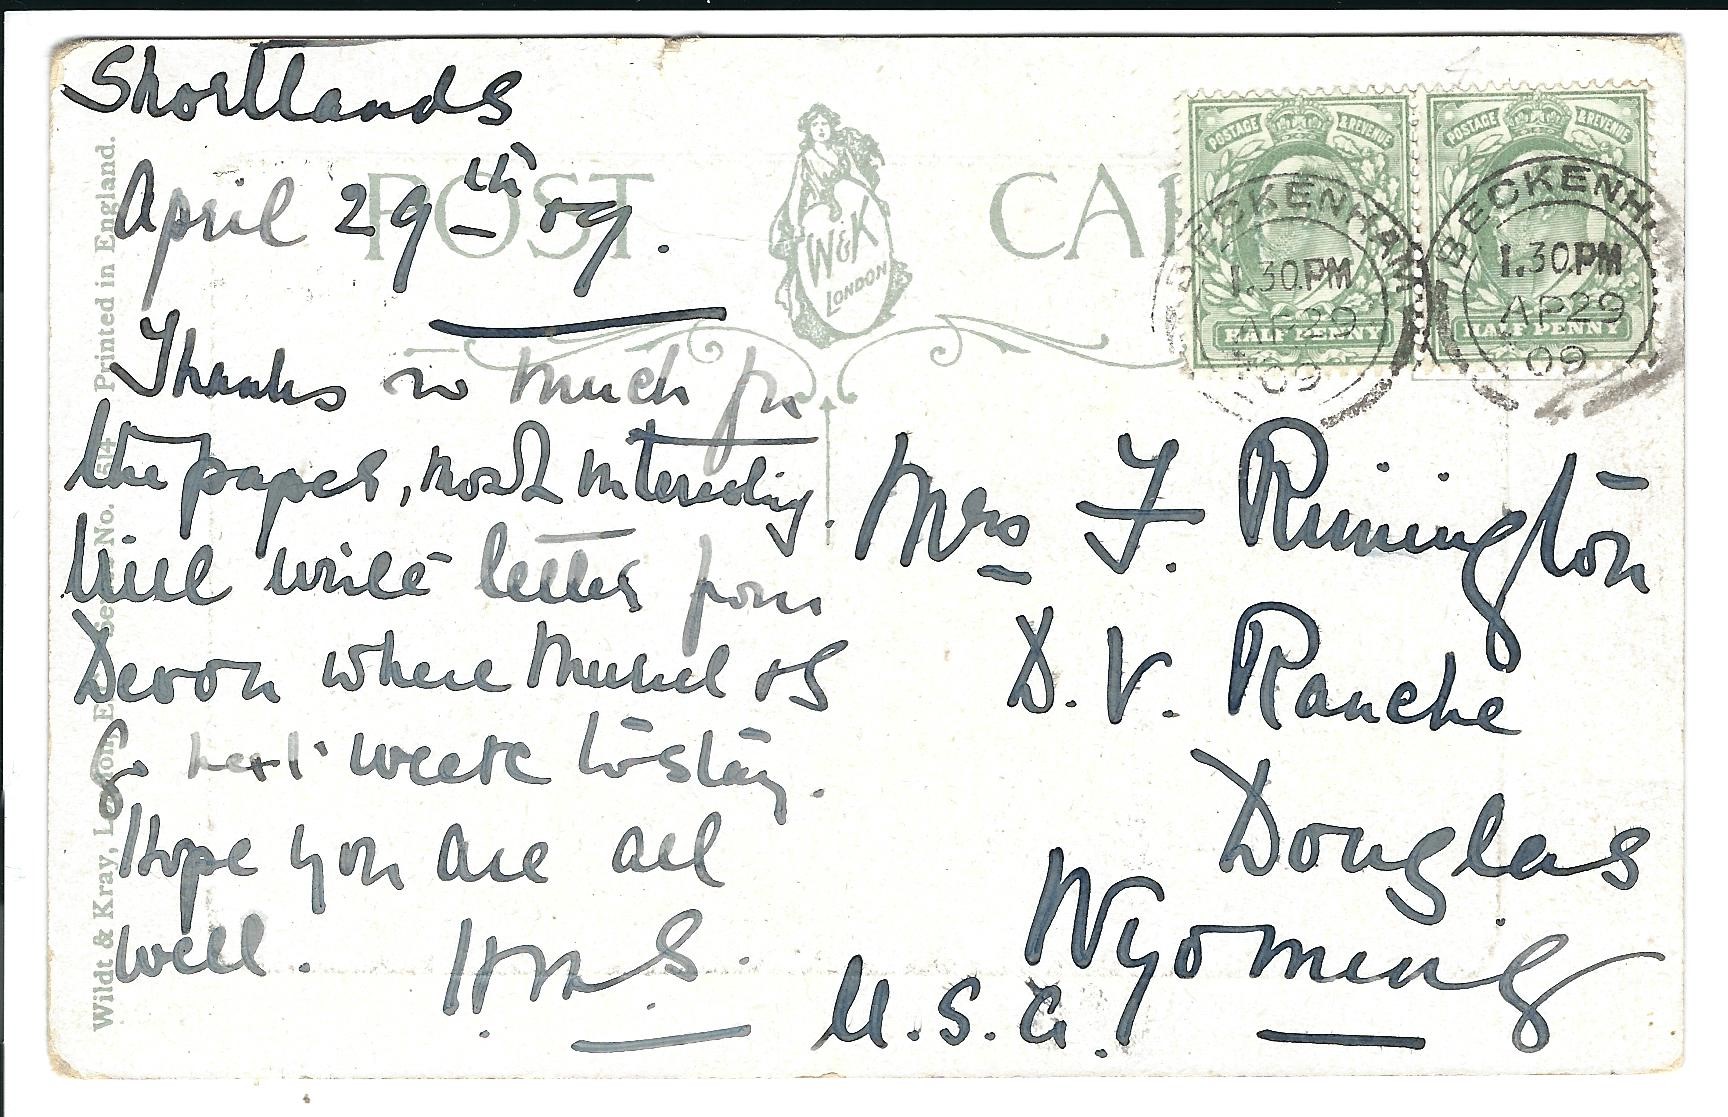 Shortlands
April 29th 09.
Thanks so much for
the papers, most interesting.
Will write letter from
Devon where Muriel & I
go next week to stay.
Hope you are all
well.
H.M.S.
POST CA
W&K
LONDON
Wildt & Kray, London, E. Series No. 514 Printed in England.
POSTAGE & REVENUE
HALF PENNY
POSTAGE & REVENUE
HALF PENNY
BECKENHAM
1.30PM
AP29
09
BECKENHA
1.30PM
AP29
09
Mrs F. Rimington
D.V. Ranche
Douglas
Wyoming
U.S.A.